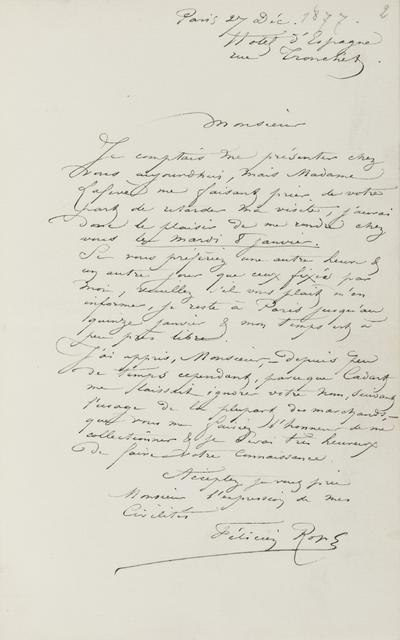 Paris 27 Déc. 1877. 2
Hotel d'Espagne
rue Tronchet.
Monsieur
Je comptais me présenter chez
vous aujourd'hui, mais Madame
me faisant prier de votre
part de retarder ma visite, j'aurai
donc le plaisir de me rendre chez
vous le mardi 8 janvier.
Si vous préfériez une autre heure &
un autre jour que ceux fixés par
moi, veuillez s'il vous plait m'en
informer, je reste à Paris jusqu'au
quinze janvier & mon temps est à
peu près libre.
J'ai appris, Monsieur, depuis peu
de temps cependant, parceque Cadart
me laissait ignorer votre nom, suivant
l'usage de la plupart des marchands –
que vous me faisiez l'honneur de me
collectionner & je serai très heureux
de faire votre connaissance.
Acceptez je vous prie
Monsieur l'expression de mes
Civilités
Félicien Rops